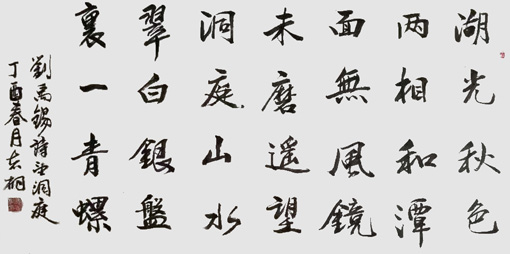 湖光秋色
两相和潭
面無風鏡
未磨遥望
洞庭山水
翠白銀盤
裏一青螺
劉禹锡詩望洞庭
丁酉春月